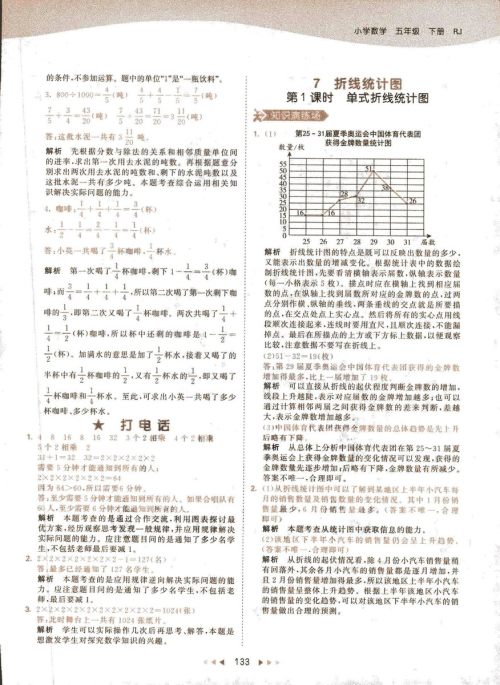 小学数学 五年级 下册 RJ
的条件,不参加运算。题中的单位“1”是“一瓶饮料”。
3. 800÷1000=4/5(吨) 4/5+4/5-1/5=7/5(吨)
7/5+3/4=43/20(吨) 4/5+7/5+43/20=3 11/20(吨)
解析 先根据分数与除法的关系和相邻质量单位间
的进率,求出第一次用去水泥的吨数。再根据题意分
别求出两次用去水泥的吨数和、剩下的水泥吨数以及
这批水泥一共有多少吨。本题考查综合运用相关知
识解决实际问题的能力。
★ 打电话
1. 4 8 16 8 16 32 3个2相乘 4个2相乘
5个2相乘 2
31+1=32 32=2×2×2×2×2
需要5分钟才能通知到所有的人。
2×2×2×2×2×2=64
因为64>60,所以需要6分钟。
答:至少需要5分钟才能通知到所有的人。如果合唱队有
60人,至少需要6分钟才能通知到所有的人。
解析 本题考查的是通过合作交流,利用图表探讨最
优方案,经历观察思考发现一般规律,并应用规律解决
实际问题的能力。应注意题目问的是通知了多少名学
生,不包括老师最后要减1。
2. 2×2×2×2×2×2×2-1=127(名)
答:最多已经通知了127名学生。
解析 本题考查的是应用规律逆向解决实际问题的能
力。应注意题目问的是通知了多少名学生,不包括老
师,最后要减1。
3. 2×2×2×2×2×2×2×2×2×2=1024(张)
答:此时舞台上一共有1024张纸片。
解析 学生可以实际操作几次后再思考、解答,本题是
想激发学生对探究数学知识的兴趣。
7 折线统计图
第1课时 单式折线统计图
知识演练场
1. (1) 第25~31届夏季奥运会中国体育代表团
获得金牌数量统计图
数量/枚
55
50
45
40
35
30
25
20
15
10
5
0
16 16 28 32 51 38 26
25 26 27 28 29 30 31 届数
解析 折线统计图的特点是既可以反映出数量的多少,
又能表示出数量的增减变化。根据统计表中的数据绘
制折线统计图,先要看清横轴表示届数,纵轴表示数量
(每一小格表示5枚)。描点时应在横轴上找到相应届
数的点,在纵轴上找到届数所对应的金牌数的点,过两
点分别作横、纵轴的垂线,两条垂线的交点就是所要描
的点,在交点处点上实心点。然后将所有的实心点用线
段顺次连接起来,连线时要用直尺,且顺次连接,不能漏
掉点。最后在所描点的上方或下方标上数据,以便观察
比较,注意数据不要写在折线上。
(2)51-32=19(枚)
答:第29届夏季奥运会中国体育代表团获得的金牌数
增加得最多,比上一届增加了19枚。
解析 可以直接从折线的起伏程度判断金牌数的增加,
线段上升越陡,表示对应届数的金牌增加越多;也可以
通过计算相邻两届之间获得金牌数的差来判断,差越
大,表示金牌数增加越多。
(3)中国体育代表团获得金牌数量的总体趋势是先上升
后略有下降。
解析 从总体上分析中国体育代表团在第25~31届夏
季奥运会上获得金牌数量的变化情况可以发现,获得的
金牌数量先逐步增加;后略有下降,金牌数量有所减少。
答案不唯一,合理即可。
2. (1)从折线统计图中可以了解到某地区上半年小汽车每
月的销售数量及销售数量的变化情况。其中1月份销
售量最少,6月份销售量最多。(答案不唯一,合理
即可)
解析 本题考查从统计图中获取信息的能力。
(2)该地区下半年小汽车的销售量仍会呈上升趋势。
(答案不唯一,合理即可)
解析 从折线的起伏情况看,除4月份小汽车销售量稍
有回落外,其余各月小汽车的销售量都是逐月增加,并
且2月份销售量增加得最多,所以该地区上半年小汽车
的销售量呈整体上升趋势。根据上半年该地区小汽车
的销售量的变化趋势,可以对该地区下半年小汽车的销
售量做出合理的预测。
133